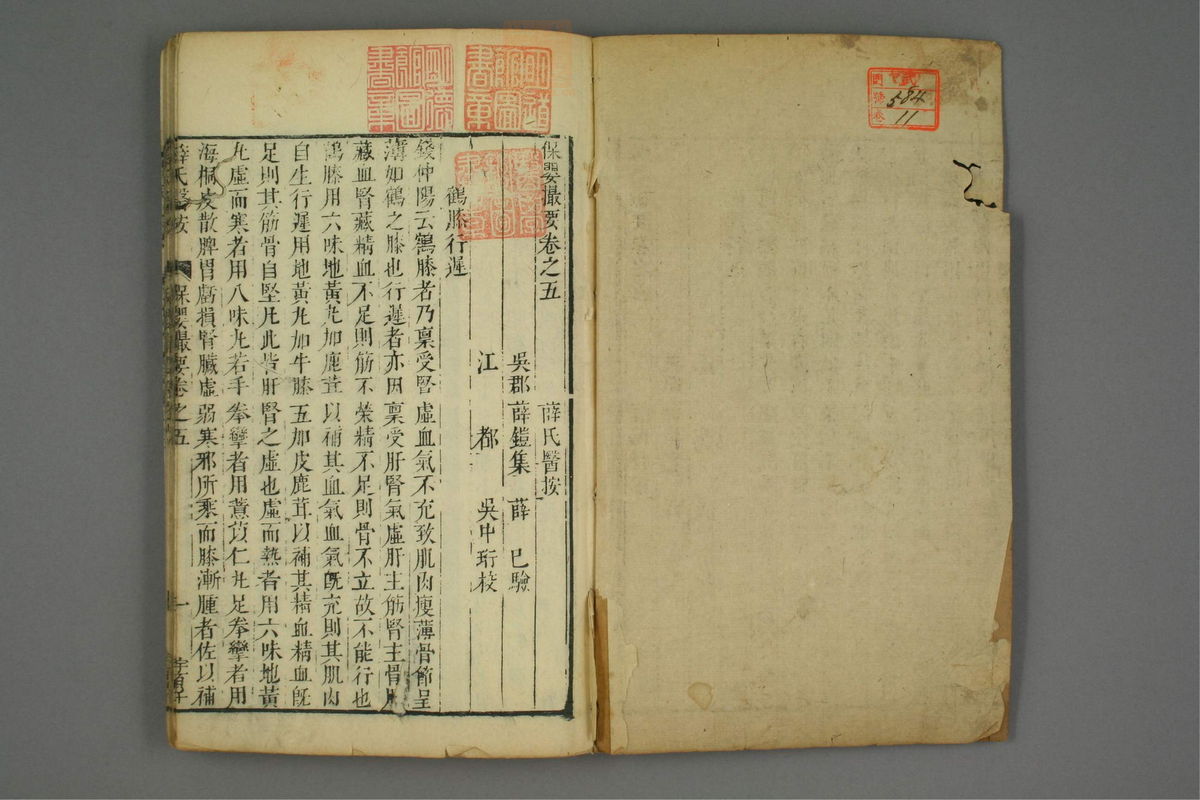 保嬰撮要卷之五　薛氏醫按
吳郡　薛鎧集　薛　已驗
江　都　吳中珩校
鶴膝行遲
錢仲陽云鶴膝者乃稟受腎虛血氣不充致肌肉瘦薄骨節呈
薄如鶴之膝也行遲者亦因稟受肝腎氣虛肝主筋腎主骨肝
藏血腎藏精血不足則筋不榮精不足則骨不立故不能行也
鶴膝用六味地黃丸加鹿茸以補其血氣血氣旣充則其肌肉
自生行遲用地黃丸加牛膝五加皮鹿茸以補其精血精血旣
足則其筋骨自堅凡此皆肝腎之虛也虛而熱者用六味地黃
丸虛而寒者用八味丸若手拳攣者用薏苡仁丸足拳攣者用
海桐皮散脾胃虧損腎臟虛弱寒邪所乘而膝漸腫者佐以補
薛氏醫按　保嬰撮要卷之五　一
門
號
卷
584
11